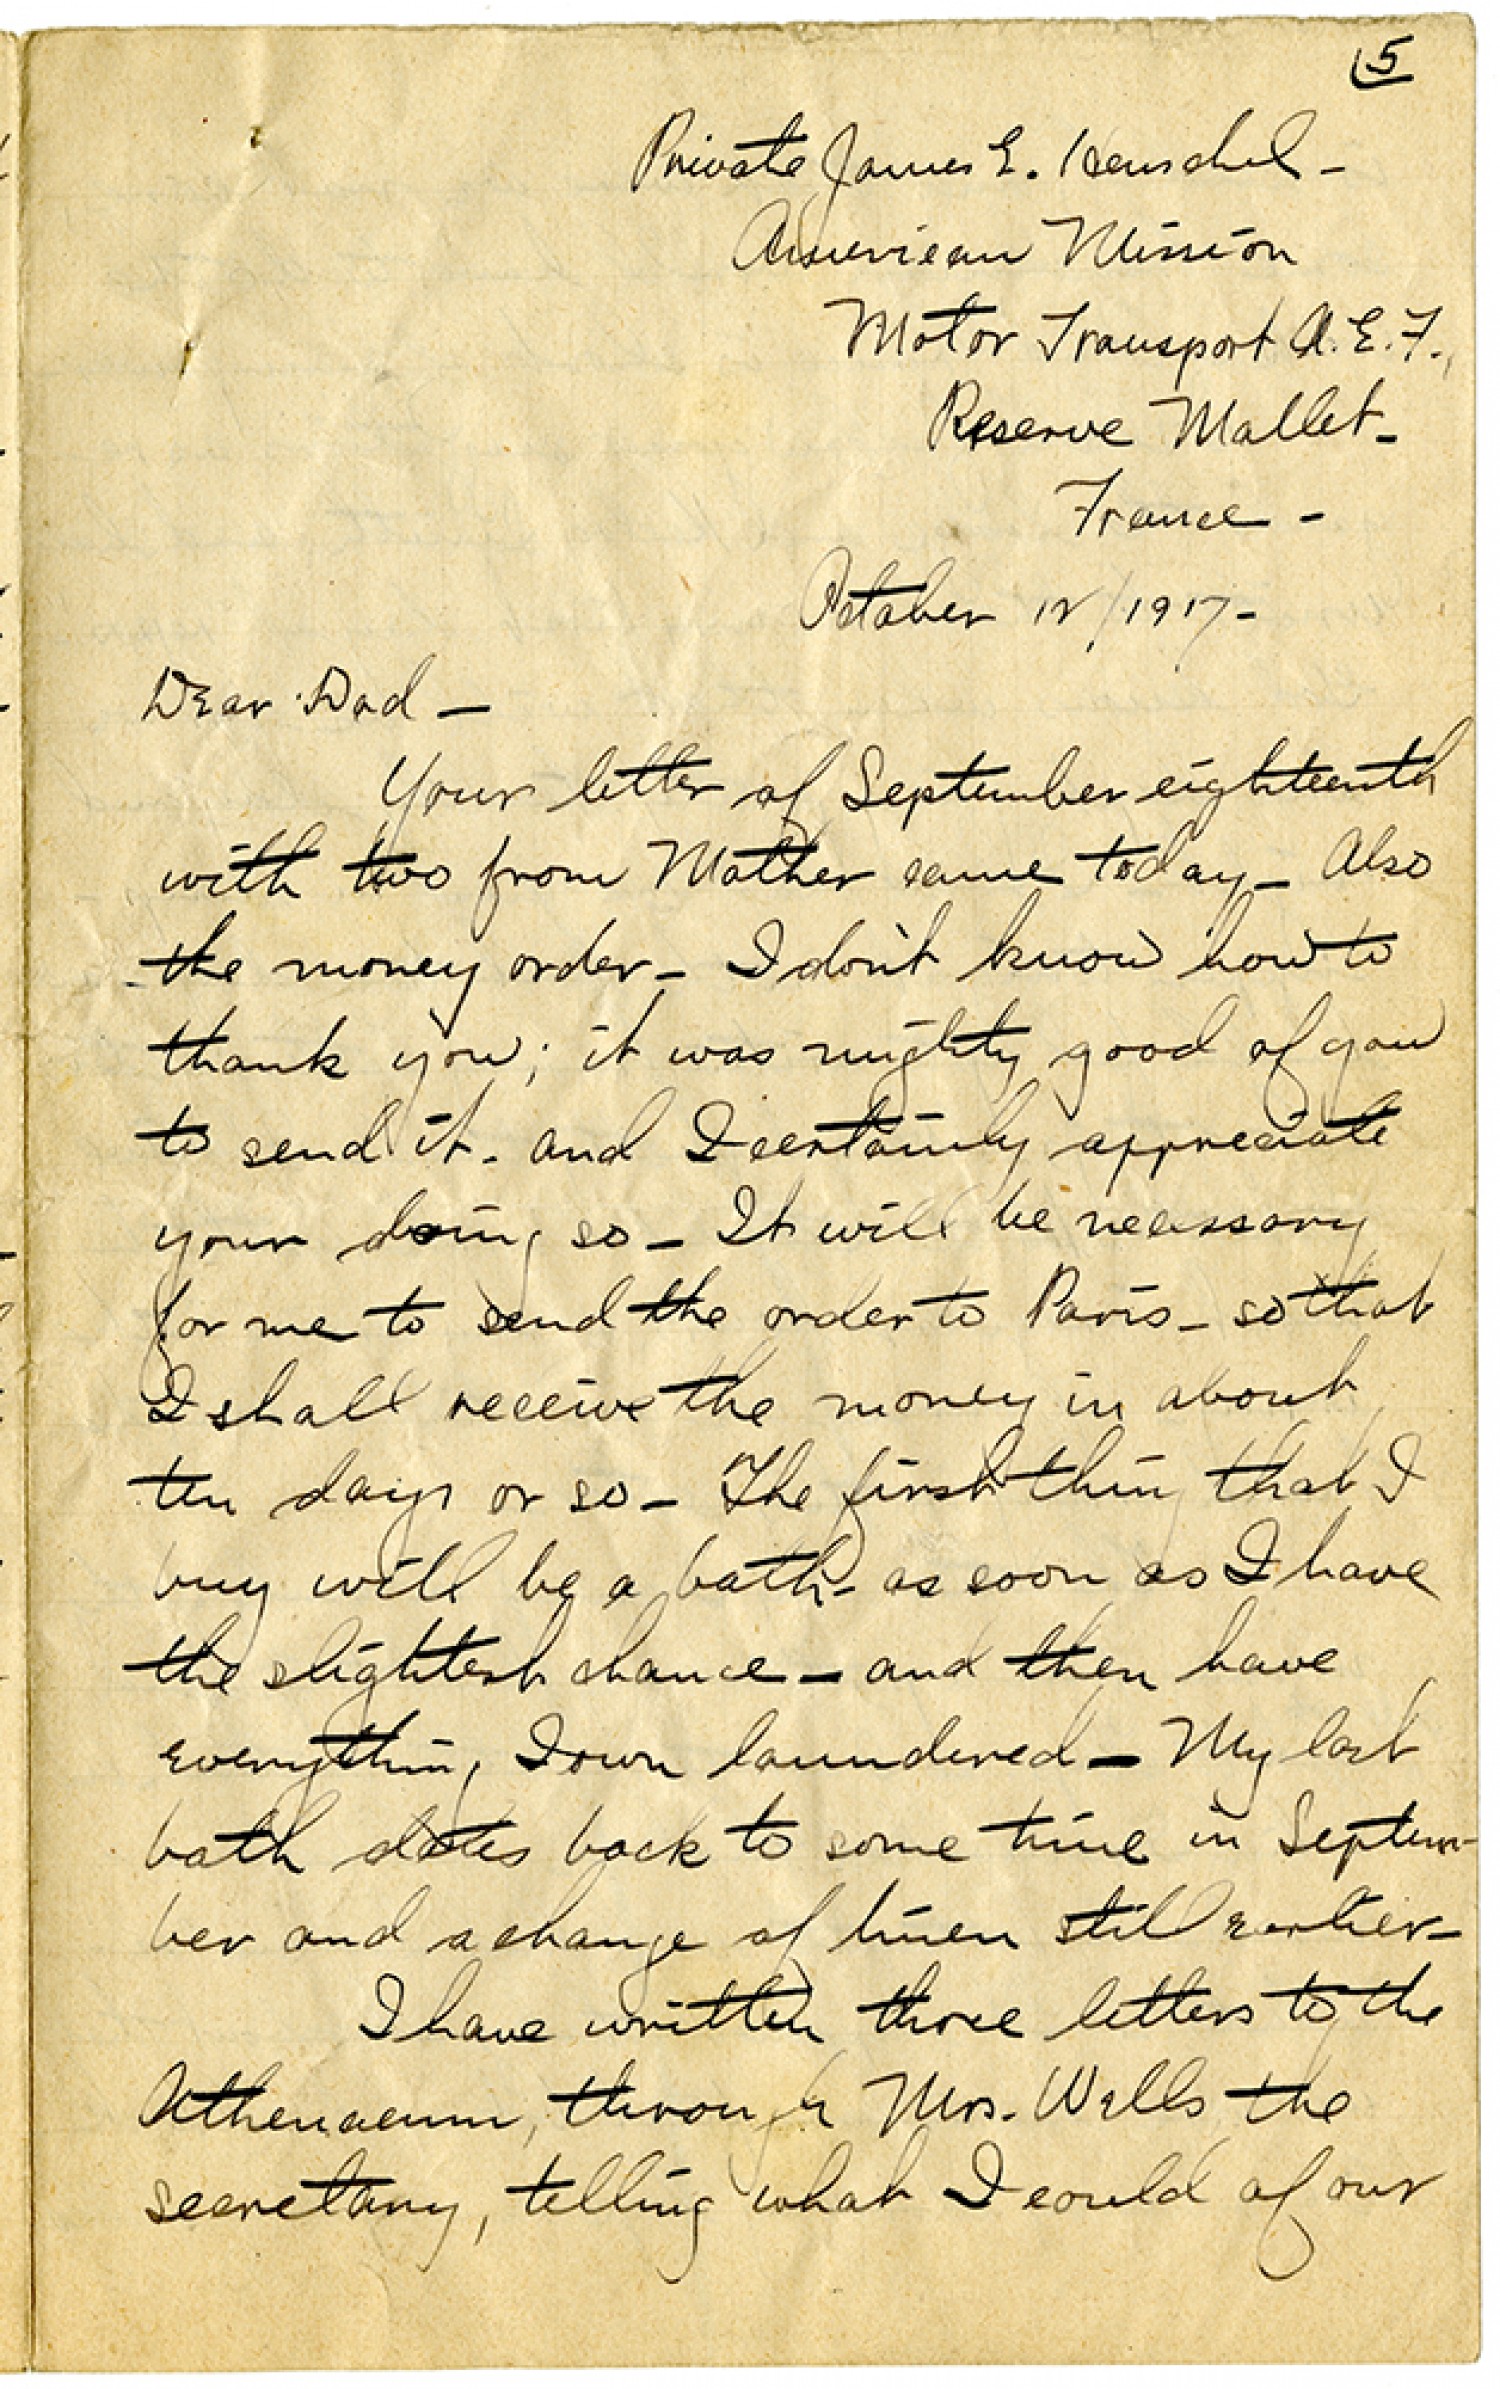 5
Private James E. Henschel -
American Mission
Motor Transport A. E. F.,
Reserve Mallet -
France -
October 12/1917 -
Dear Dad -
Your letter of September eighteenth
with two from Mother came today - Also
the money order - I don't know how to
thank you; it was mighty good of you
to send it. and I certainly appreciate
your doing so - It will be necessary
for me to send the order to Paris - so that
I shall receive the money in about
ten days or so - The first thing that I
buy will be a bath - as soon as I have
the slightest chance - and then have
everything I own laundered - My last
bath dates back to some time in Septem-
ber and a change of linen still earlier -
I have written three letters to the
Athenaeum, through Mrs. Wells the
secretary, telling what I could of our